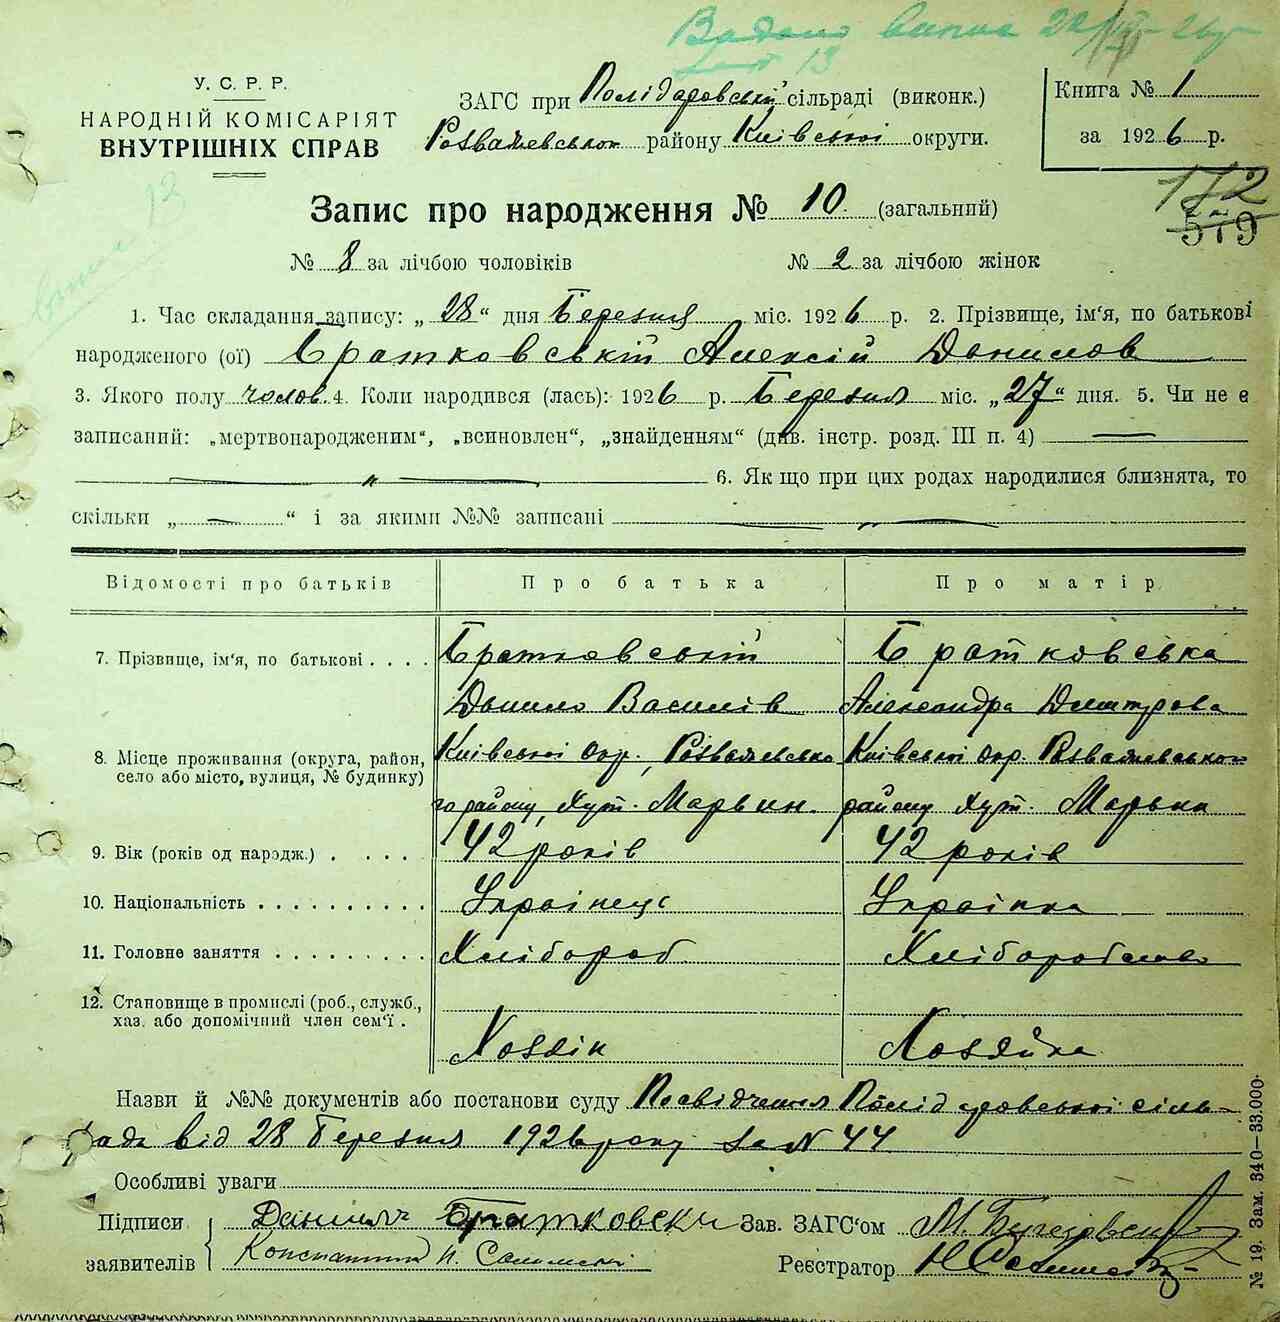 Видано
13
У. С. Р. Р.
НАРОДНІЙ КОМІСАРІЯТ
ВНУТРІШНІХ СПРАВ
ЗАГС при Полідаровській сільраді (виконк.)
Розважевськом району Київської округи.
Книга № 1
за 1926 р.
172
579
13
Запис про народження № 10. (загальний)
№ 8 за лічбою чоловіків № 2 за лічбою жінок
1. Час складання запису: „28“ дня Березня міс. 1926 р. 2. Прізвище, ім'я, по батькові
народженого (ої) Братковській Алексій Данилов
3. Якого полу чолов. 4. Коли народився (лась): 1926 р. Березня міс. „27“ дня. 5. Чи не є
записаний: „мертвонародженим“, „всиновлен“, „знайденням“ (див. інстр. розд. III п. 4) —
— „ — 6. Як що при цих родах народилися близнята, то
скільки „ — “ і за якими №№ записані — „ —
Відомості про батьків Про батька Про матір
7. Прізвище, ім'я, по батькові . . . . Братковській Братковська
Данило Василів Александра Дмитрова
8. Місце проживання (округа, район, село або місто, вулиця, № будинку) Київської окр., Розважевсько Київської окр. Розважевськом
го району, Хут. Марьин. району Хут. Марьин
9. Вік (років од народж.) . . . . . 42 років 42 років
10. Національність . . . . . . . . . . Українець Українка
11. Головне заняття . . . . . . . . . Хлібороб Хліборобство
12. Становище в промислі (роб., служб.,
хаз. або допомічний член сем'ї . Хозяін Хозяйка
Назви й №№ документів або постанови суду Посвідчення Полідаровської сіль-
ради від 28 Березня 1926 року за N 44
Особливі уваги
Підписи Данило Братковски Зав. ЗАГС'ом
заявителів Реєстратор
№ 19. Зам. 340—33.000.